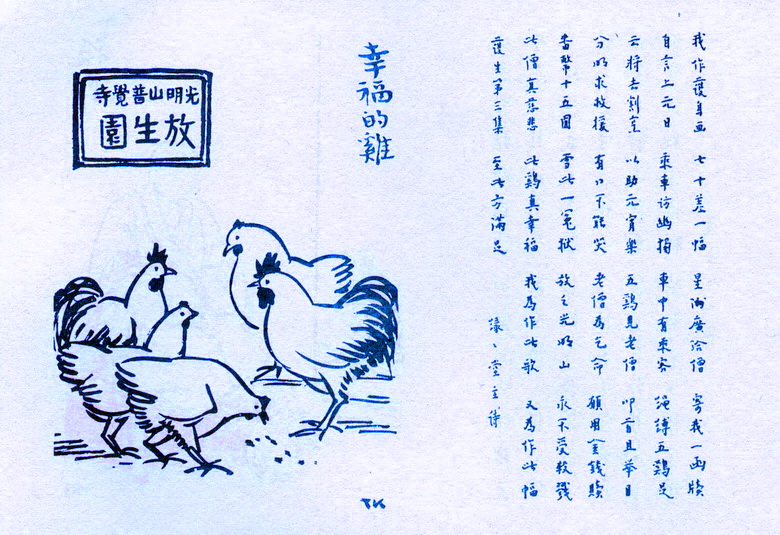 我作護生画 七十差一幅 星洲廣洽僧 寄我一函牘
自言上元日 乘車訪幽獨 車中有乘客 繩縛五鷄足
云將去割烹 以助元宵樂 五鷄見老僧 叩首且舉目
分明求救援 有口不能哭 老僧為乞命 願用金錢贖
番幣十五圓 雪此一冤獄 放之光明山 永不受殺戮
此僧真慈悲 此鷄真幸福 我為作此歌 又為作此幅
護生第三集 至此方滿足 緣、堂主詩
幸福的雞
光明山普覺寺
放生園
TK